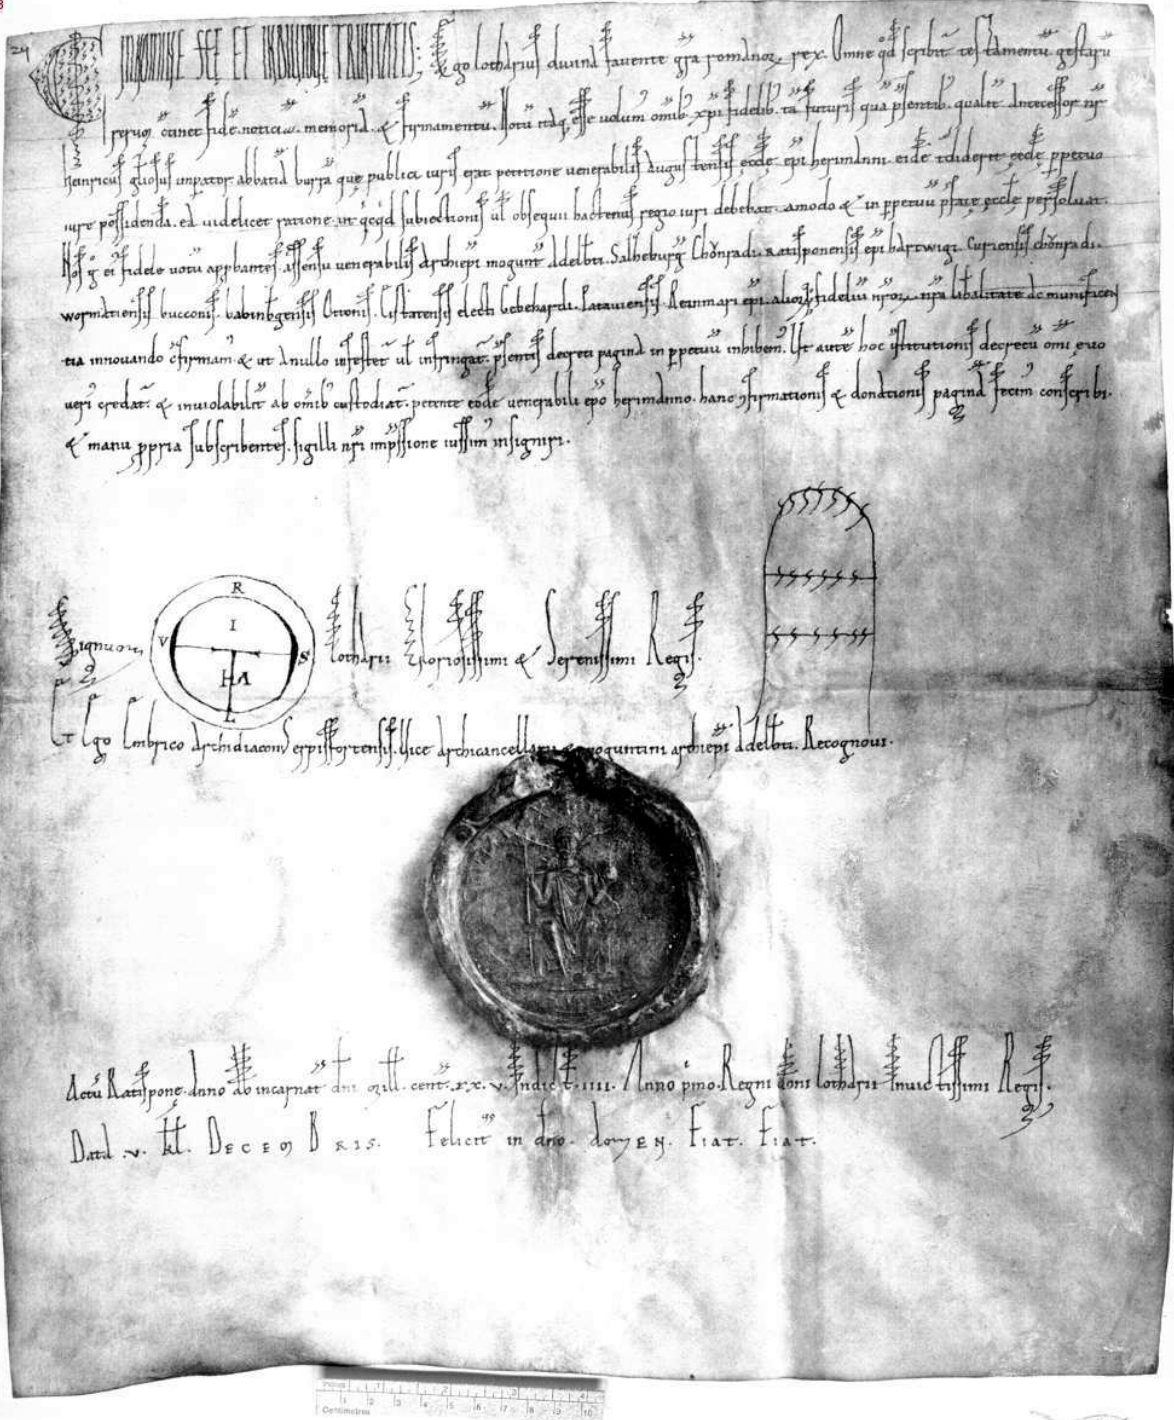 24
IN NOMINE SCE ET INDIVIDUE TRINITATIS; Ego lotharius divina favente gra romanor rex. Omne qd scribit testamentu gestaru
reru continet fide noticia memoria & firmamentu. Notu itaq esse volum omib xpi fidelib ta futuris qua psentib. qualit antecessor nr
heinricus gliosus impator abbatia burra que publici iuris erat petitione venerabilis augustensis eccle epi herimanni. eide tdiderit eccle ppetuo
iure possidenda. ea videlicet ratione. int qcqd subiectionis ul obsequii hactenus regio iuri debebat. amodo & in ppetuu pfate eccle persolvat.
Nos g ei fidele votu appbantes. assensu venerabilis archiepi mogunt adelbti. Salzeburg Chonradi. Ratisponensis epi hartwigi. Curiensis chonradi.
wormationsis bucconis. babinbgensis Ottonis. Eistatensis electi Gebehardi. Pataviensis. Reinmari epi. alior fideliu nror. nra libalitate ac munificen
tia innovando cfirmam. & ut a nullo infestet ul infringat. psentis decreti pagina in ppetuu inhibem. Ut aute hoc cstitutionis decretu omi evo
veri credat. & inviolabilit ab omib custodiat. petente eode venerabili epo herimanno. hanc cfirmationis & donationis pagina fecim conscribi.
& manu ppria subscribentes. sigilli nri impssione iussim insigniri.
Signum LVTHARIS lotharii Gloriosissimi & Serenissimi Regis.
Et Ego Embrico archidiacon erpisfortensis. Vice archicancellarii & moguntini archiepi adelbti. Recognovi.
Actu Ratispone. anno ab incarnat dni mill. cent. xx. v. Indict. iiii. Anno pmo. Regni domi lotharii Invictissimi Regis.
Data .v. kl. DECEMBRIS. Felicit in dno. amEN. FIAT. FIAT.
Centimetres